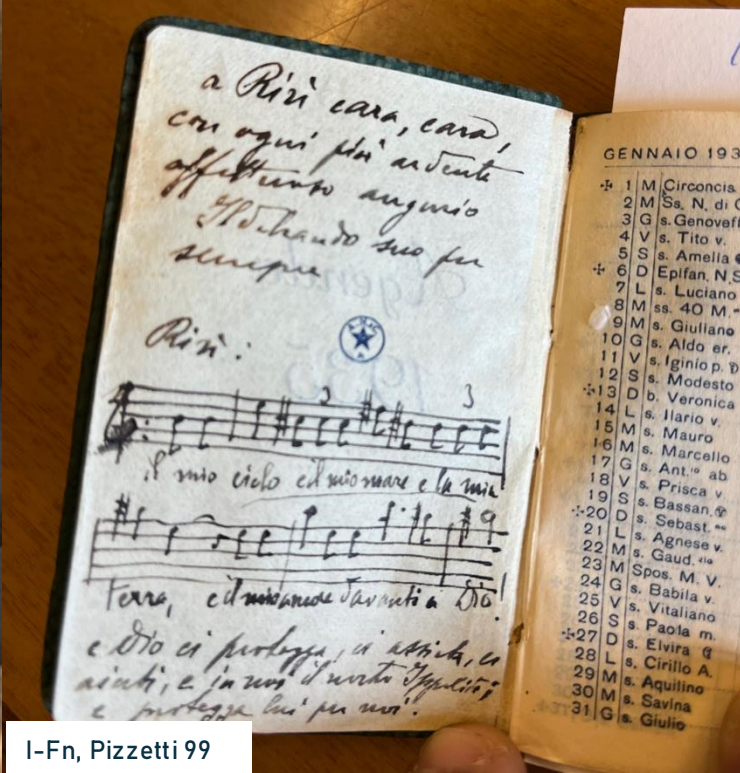 a Rirì cara, cara,
con ogni più ardente
affettuoso augurio
Ildebrando suo per
sempre
Rirì:
3 3
il mio cielo e il mio mare e la mia
terra, e il mio amore davanti a Dio!
e Dio ci protegga, ci assista, ci
aiuti, e in noi il nostro Ippolito;
e protegga lui per noi.
GENNAIO 193
✠ 1 M Circoncis.
2 M Ss. N. di G
3 G s. Genoveff
4 V s. Tito v.
5 S s. Amelia
✠ 6 D Epifan. N.S
7 L s. Luciano
8 M ss. 40 M.
9 M s. Giuliano
10 G s. Aldo er.
11 V s. Iginio p.
12 S s. Modesto
✠13 D b. Veronica
14 L s. Ilario v.
15 M s. Mauro
16 M s. Marcello
17 G s. Ant.io ab
18 V s. Prisca v
19 S s. Bassan.
✠20 D s. Sebast.
21 L s. Agnese v.
22 M s. Gaud.
23 M Spos. M. V.
24 G s. Babila v
25 V s. Vitaliano
26 S s. Paola m.
✠27 D s. Elvira
28 L s. Cirillo A.
29 M s. Aquilino
30 M s. Savina
31 G s. Giulio
I-Fn, Pizzetti 99